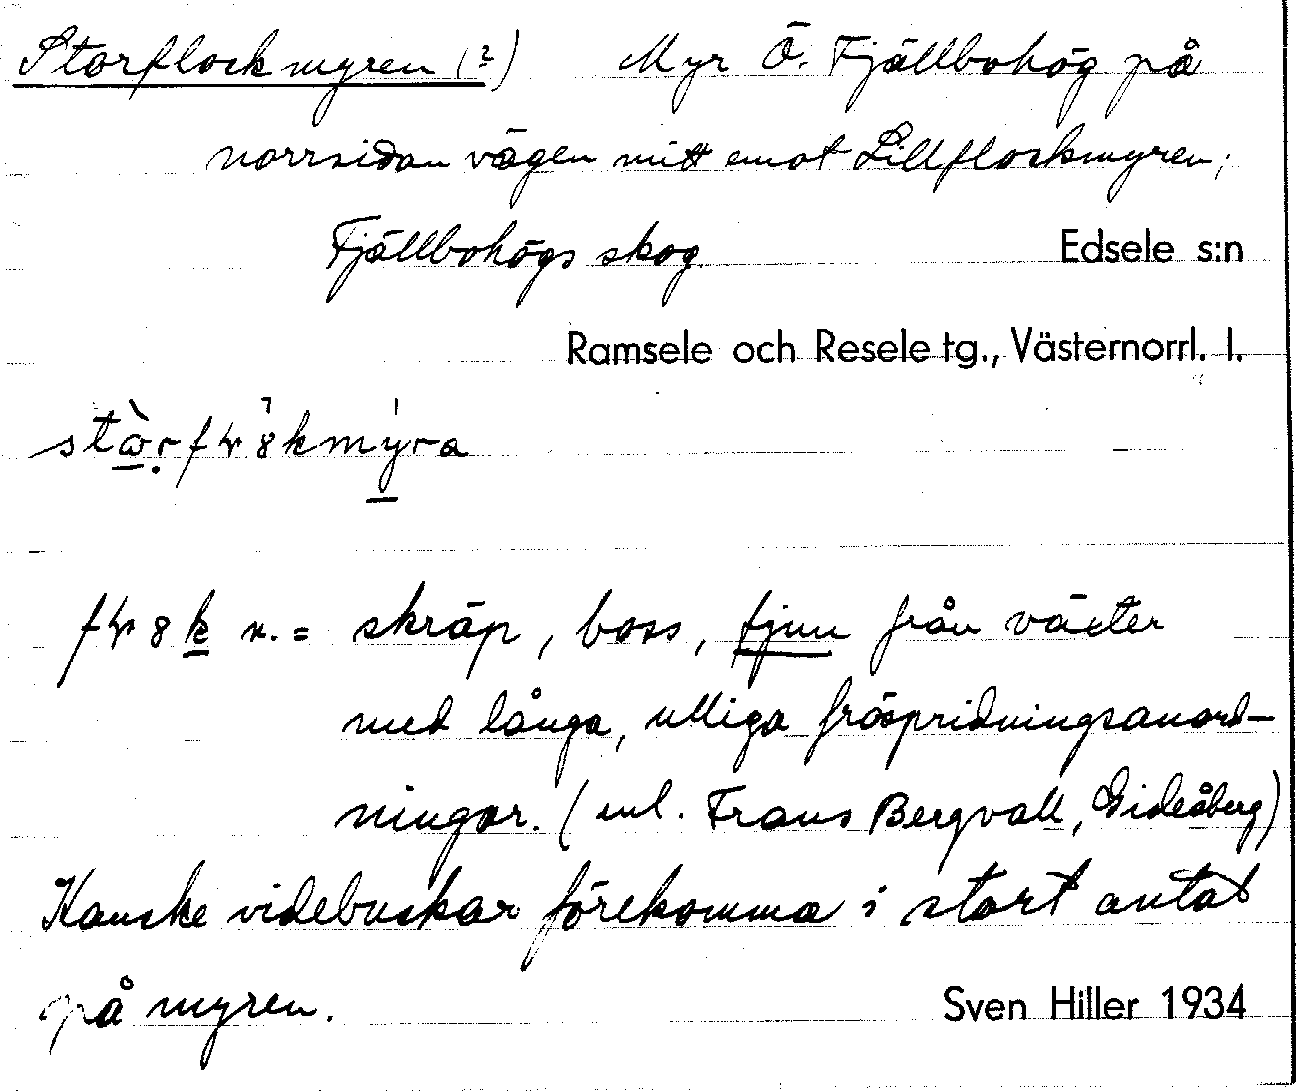 Storflockmyren (?) Myr Ö. Fjällbohög på
norrsidan vägen mitt emot Lillflockmyren;
Fjällbohögs skog. Edsele s:n
Ramsele och Resele tg., Västernorrl. l.
n. = skräp, boss, fjun från växter
med långa, ulliga fröspridningsanord-
ningar. (enl. Frans Bergvall, Gideåberg)
Kanske videbuskar förekomma i stort antal
på myren. Sven Hiller 1934